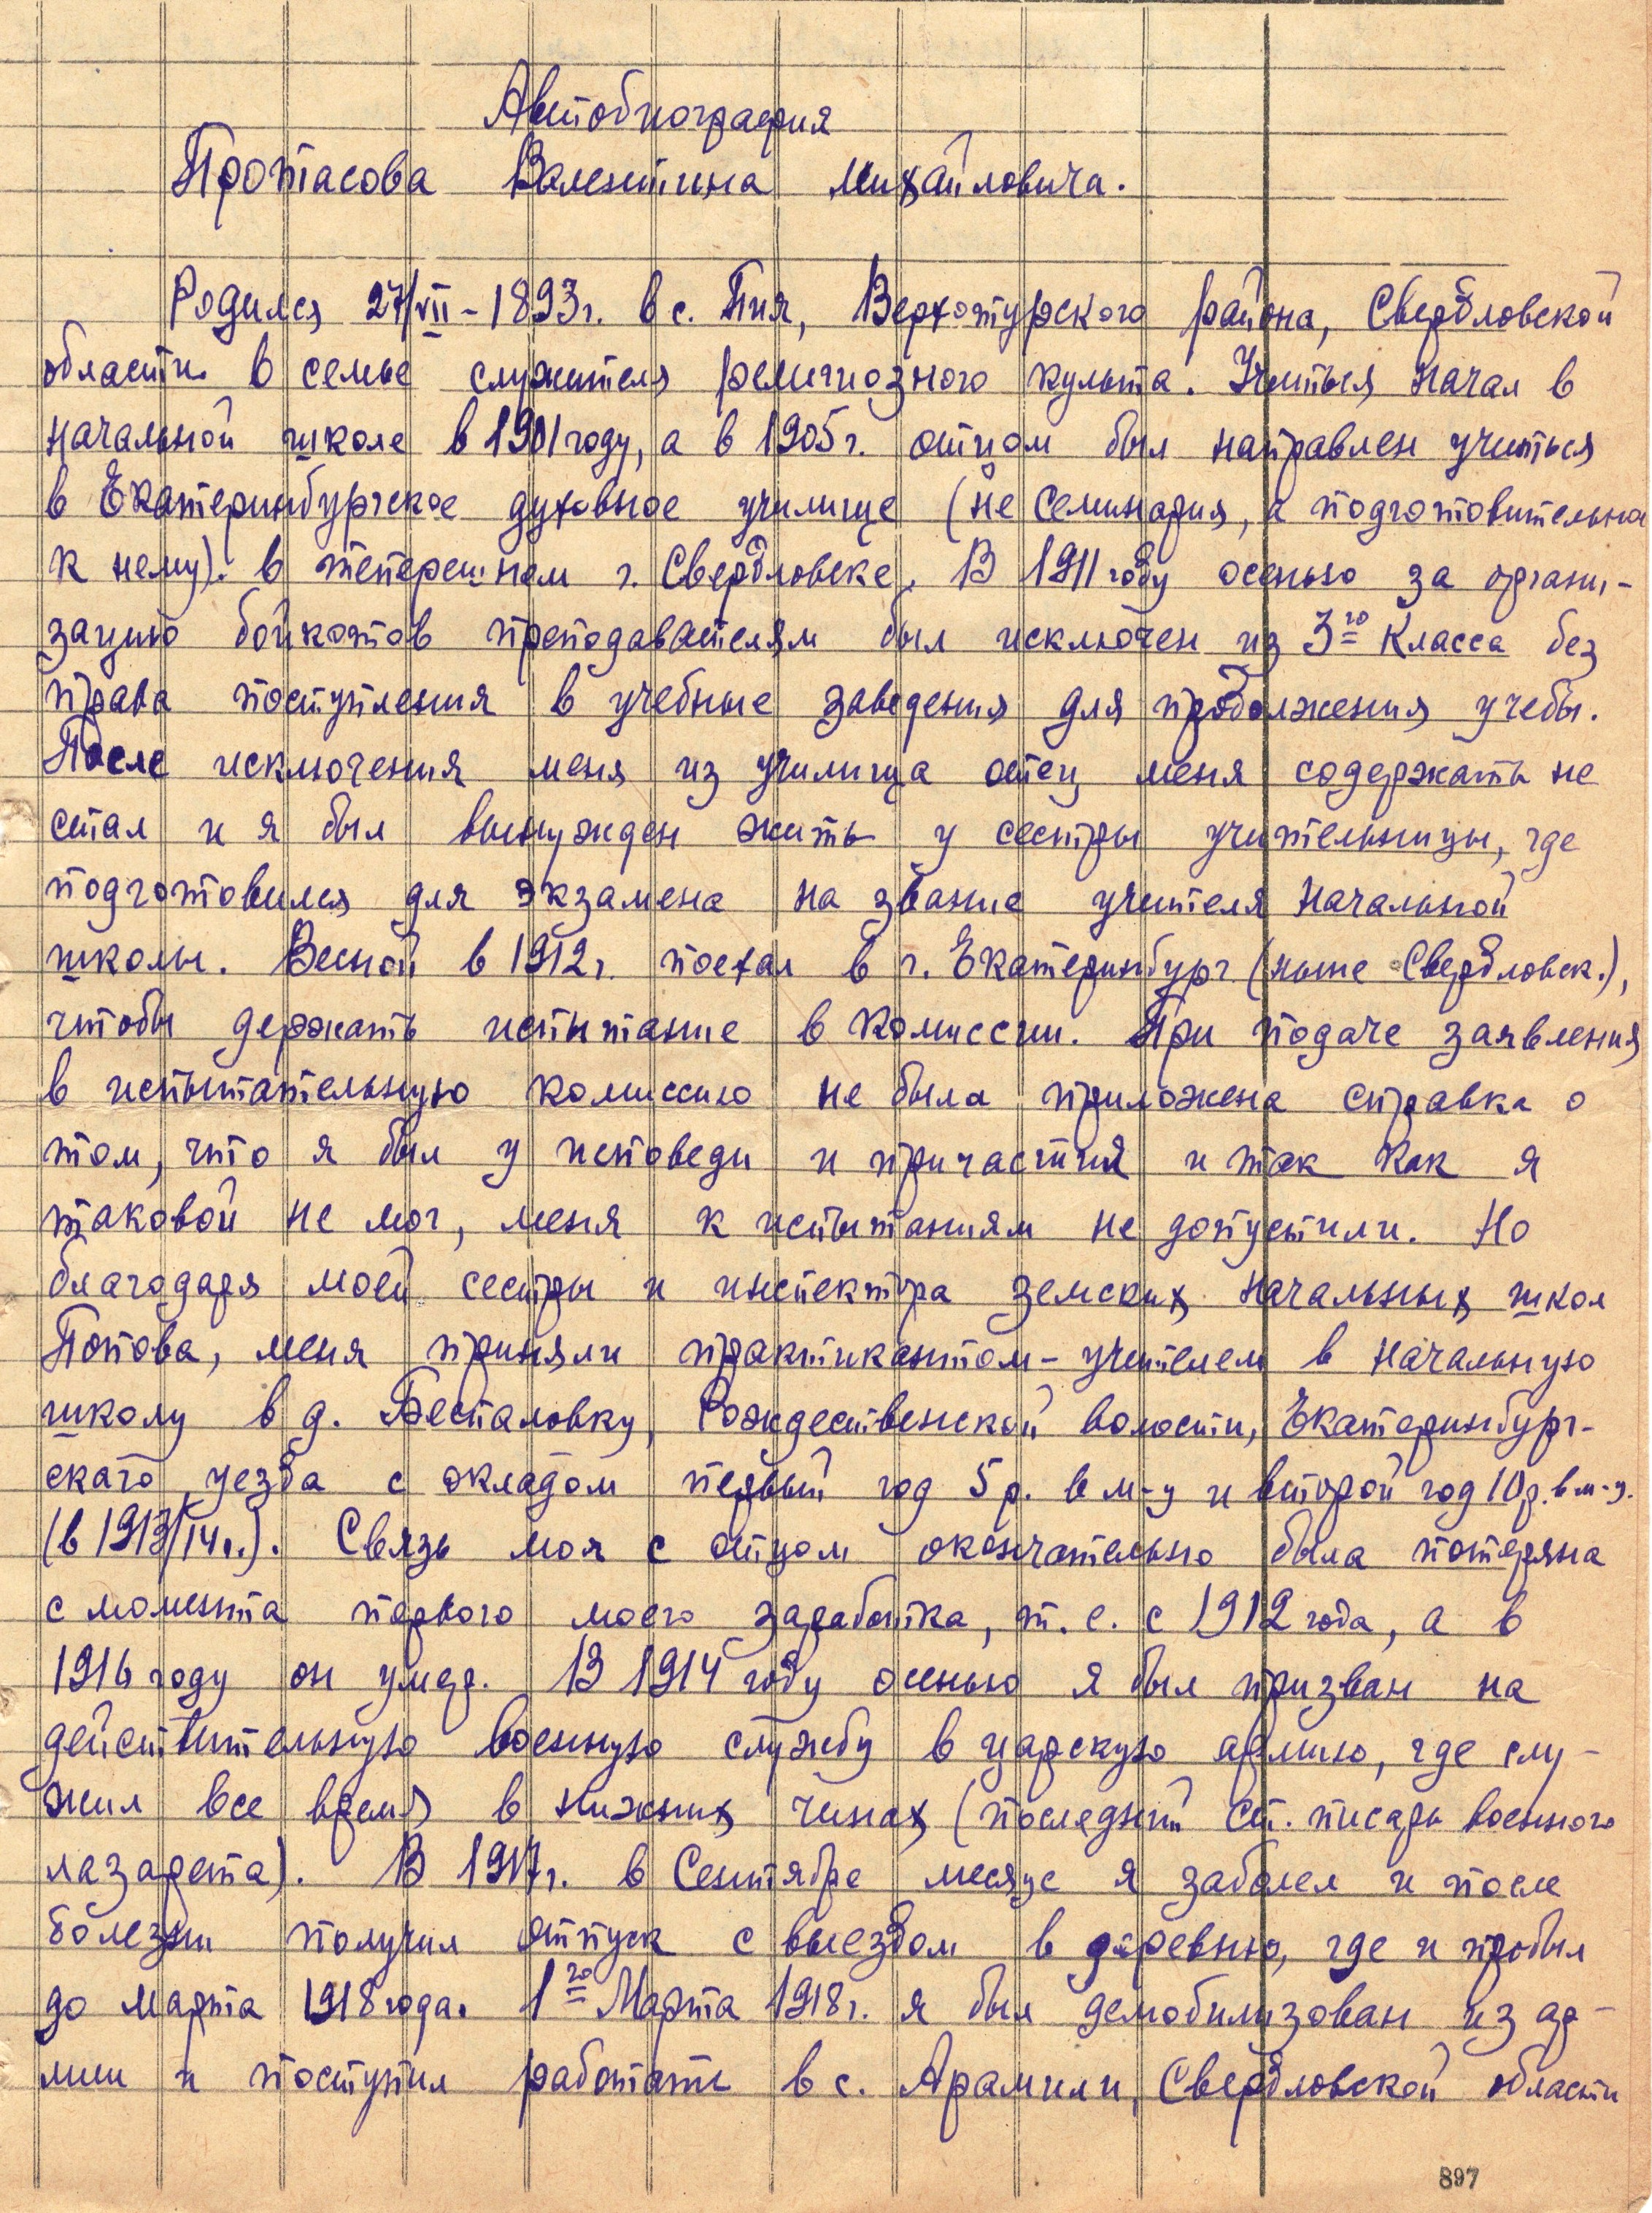 Автобиография
Протасова Валентина Михайловича.
Родился 27/VII-1893г. в с. Пия, Верхотурского района, Свердловской
области в семье служителя религиозного культа. Учиться начал в
начальной школе в 1901 году, а в 1905г. отцом был направлен учиться
в Екатеринбургское духовное училище (не семинария, а подготовительна
к нему). в теперешнем г. Свердловске. В 1911 году осенью за органи-
зацию бойкотов преподавателям был исключен из 3го класса без
права поступления в учебные заведения для продолжения учебы.
После исключения меня из училища отец меня содержать не
стал и я был вынужден жить у сестры учительницы, где
подготовился для экзамена на звание учителя начальной
школы. Весной в 1912г. поехал в г. Екатеринбург (ныне Свердловск.),
чтобы держать испытание в комиссии. При подаче заявления
в испытательную комиссию не была приложена справка о
том, что я был у исповеди и причастия и так как я
таковой не мог, меня к испытаниям не допустили. Но
благодаря моей сестры и инспектора земских начальных школ
Попова, меня приняли практикантом-учителем в начальную
школу в д. Беспаловку, Рождественской волости, Екатеринбург-
скаго уезда с окладом первый год 5 р. в м-ц и второй год 10 р. в м-ц.
(в 1913/14г.). Связь моя с отцом окончательно была потеряна
с момента первого моего заработка, т. е. с 1912 года, а в
1916 году он умер. В 1914 году осенью я был призван на
действительную военную службу в царскую армию, где слу-
жил все время в нижних чинах (последний ст. писарь военного
лазарета). В 1917г. в Сентябре месяце я заболел и после
болезни получил отпуск с выездом в деревню, где и пробыл
до Марта 1918 года. 1го Марта 1918г. я был демобилизован из ар-
мии и поступил работать в с. Арамили, Свердловской области
897